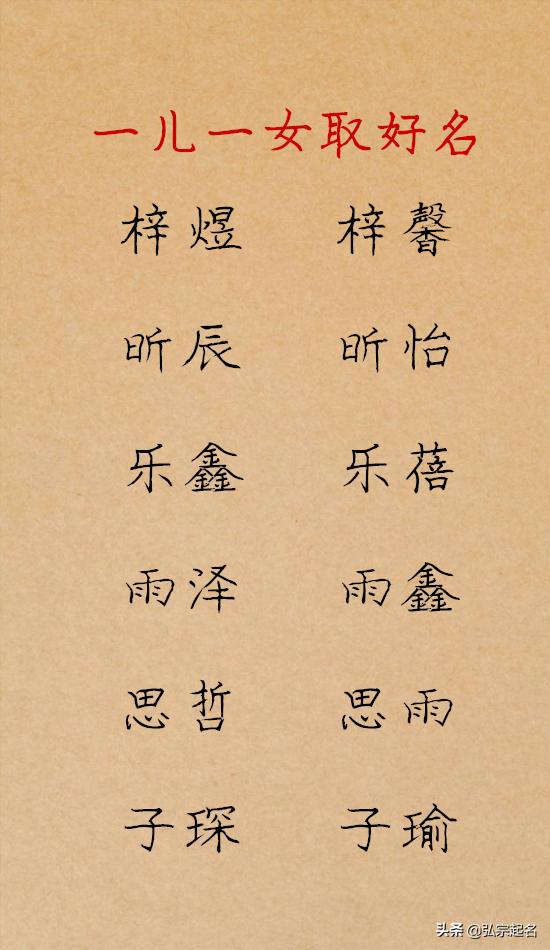 一儿一女取好名
梓煜 梓馨
昕辰 昕怡
乐鑫 乐蓓
雨泽 雨鑫
思哲 思雨
子琛 子瑜
头条 @弘宗起名